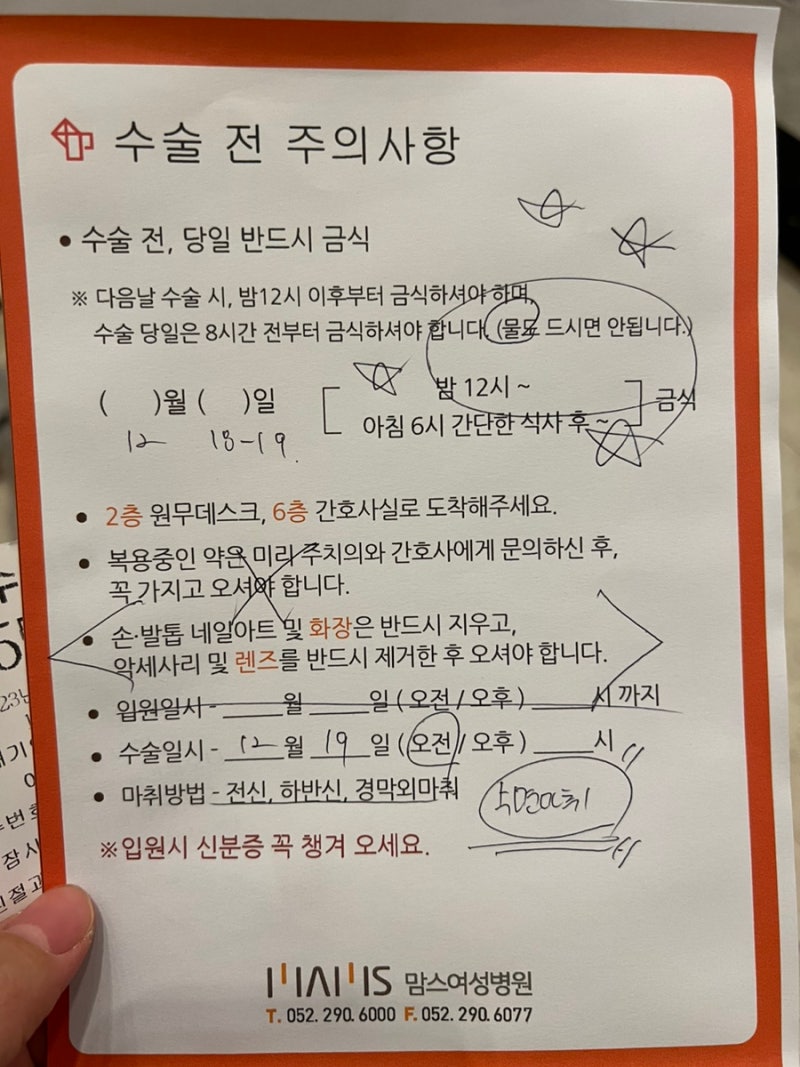 수술 전 주의사항
• 수술 전, 당일 반드시 금식
※ 다음날 수술 시, 밤12시 이후부터 금식하셔야 하며,
수술 당일은 8시간 전부터 금식하셔야 합니다. (물도 드시면 안됩니다.)
( )월 ( )일 [ 밤 12시 ~
아침 6시 간단한 식사 후 ~ ] 금식
12 18-19.
• 2층 원무데스크, 6층 간호사실로 도착해주세요.
• 복용중인 약은 미리 주치의와 간호사에게 문의하신 후,
꼭 가지고 오셔야 합니다.
• 손·발톱 네일아트 및 화장은 반드시 지우고,
악세사리 및 렌즈를 반드시 제거한 후 오셔야 합니다.
• 입원일시 - ____월 ____일 ( 오전 / 오후 ) ____시 까지
• 수술일시 - 12월 19일 ( 오전 / 오후 ) ____시
• 마취방법 - 전신, 하반신, 경막외마취 수면마취
※입원시 신분증 꼭 챙겨 오세요.
MAMS 맘스여성병원
T. 052. 290. 6000 F. 052. 290. 6077